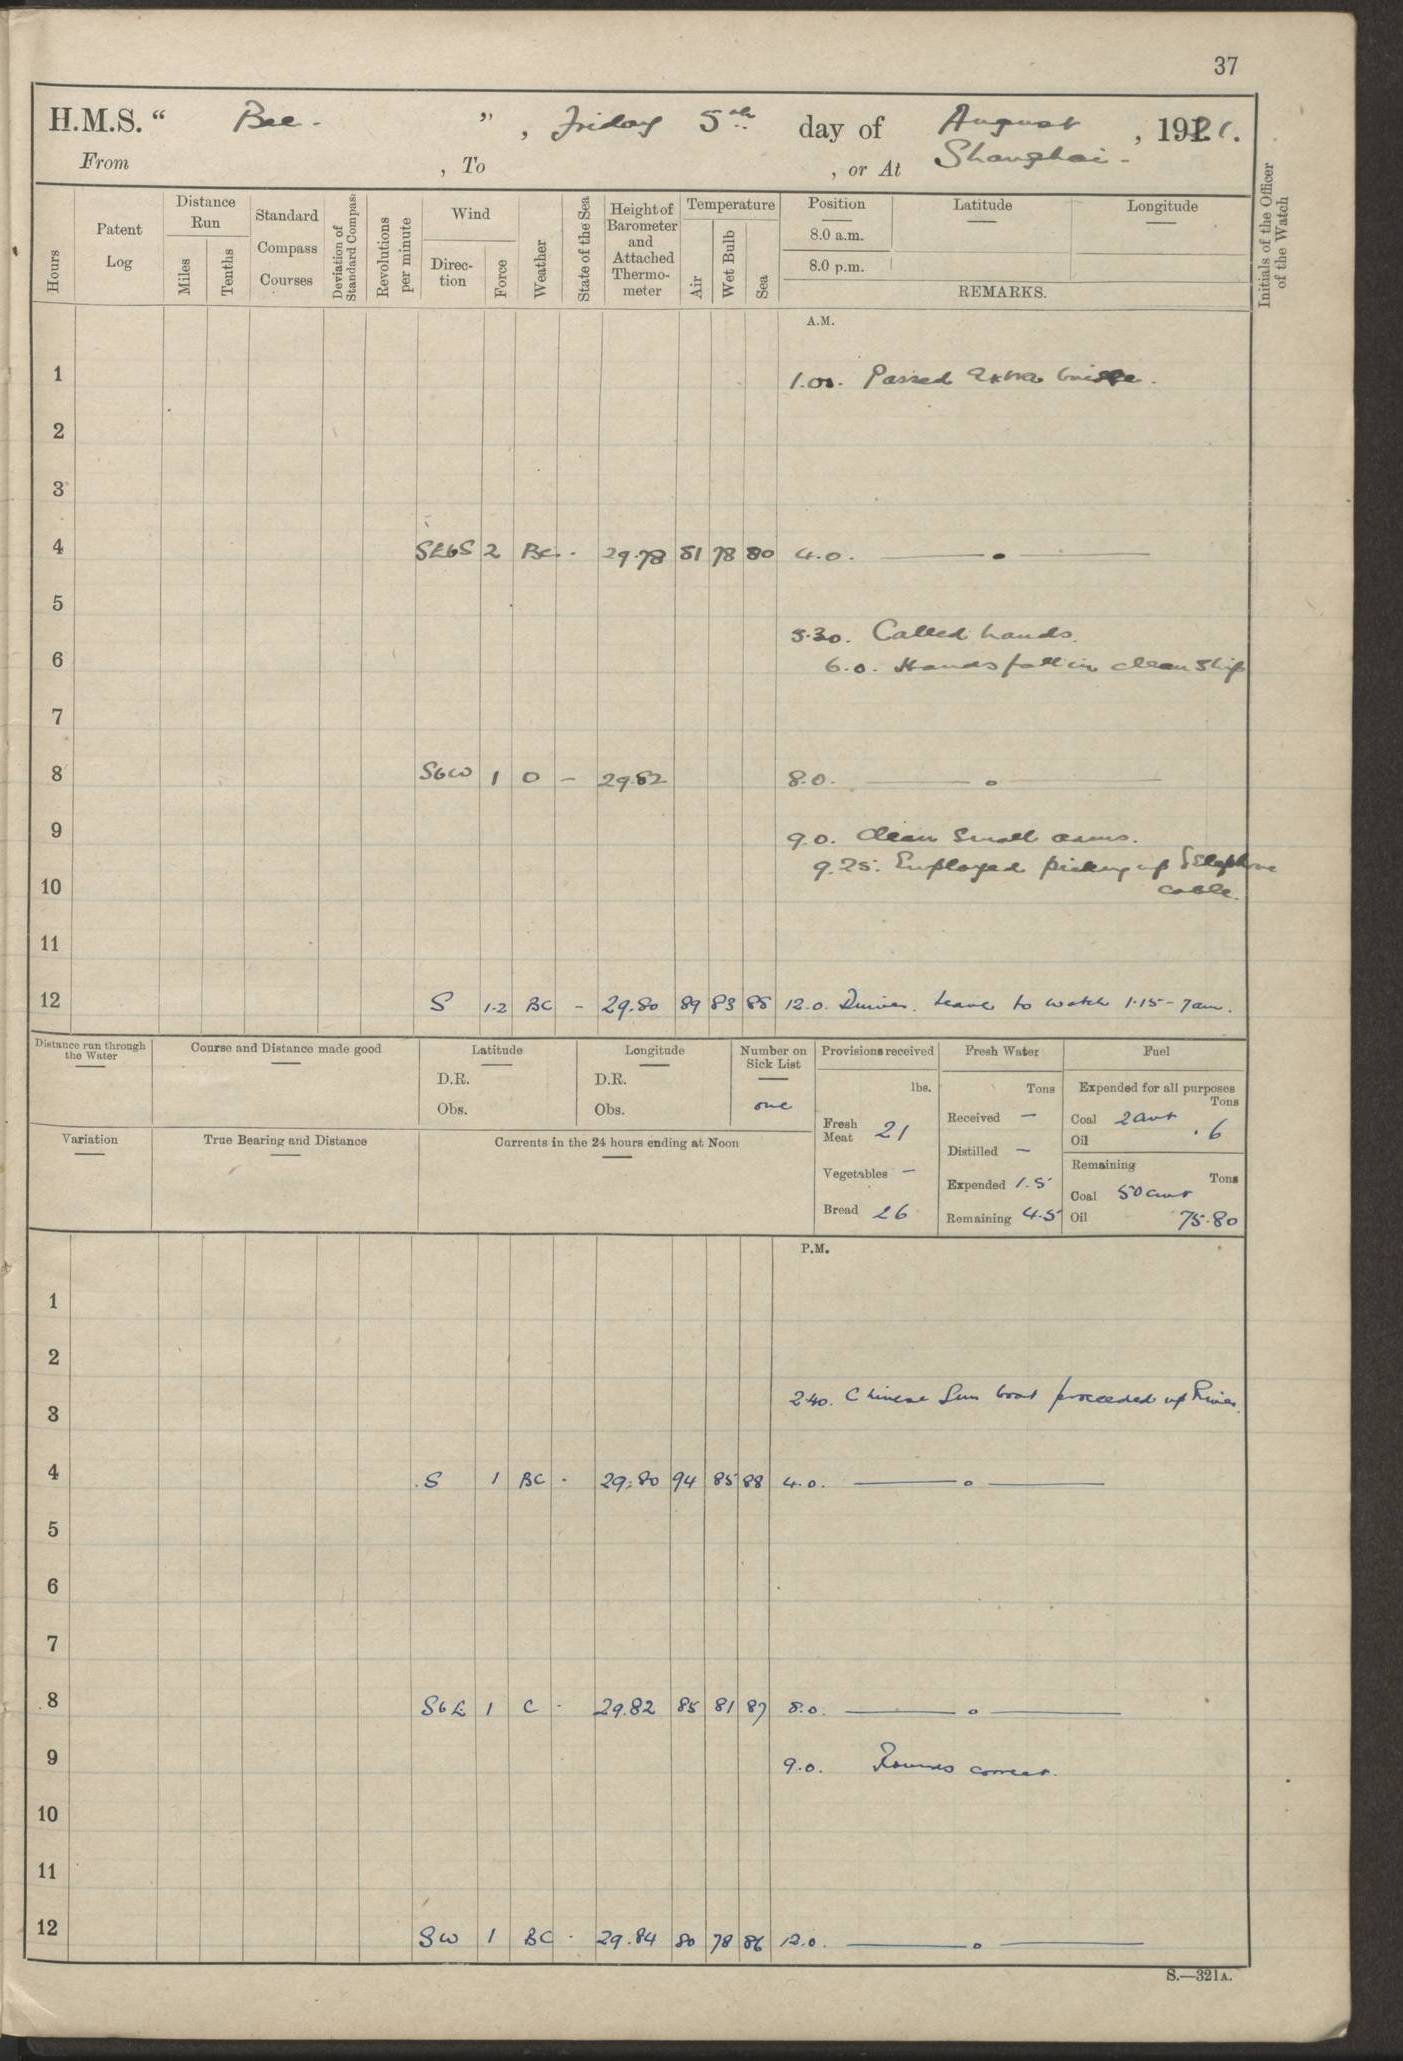 37
H.M.S. “ Bee. ” , Friday 5th day of August , 1921.
From , To , or At Shanghai.
Hours
Patent Log
Distance Run
Miles
Tenths
Standard Compass Courses
Deviation of Standard Compass
Revolutions per minute
Wind
Direc-tion
Force
Weather
State of the Sea
Height of Barometer and Attached Thermo-meter
Temperature
Air
Wet Bulb
Sea
Position
8.0 a.m.
8.0 p.m.
Latitude
Longitude
REMARKS.
Initials of the Officer of the Watch
A.M.
1 Passed extra
2
3
4 SEbS 2 BC - 29.78 81 78 80 4.0. —— o ——
5
5.30. Called hands.
6 6.0. Hands fall in clean ship
7
8 SbW 1 O - 29.82 8.0. —— o ——
9 9.0. Clean Small arms.
9.25. Employed picking up Telephone
10 cable.
11
12 S 1-2 BC - 29.80 89 83 85 12.0. Dinner. Leave to watch 1.15 - 7am.
Distance run through the Water
Course and Distance made good
Latitude
D.R.
Obs.
Longitude
D.R.
Obs.
Number on Sick List
one
Provisions received
lbs.
Fresh Meat 21
Vegetables -
Bread 26
Fresh Water
Tons
Received -
Distilled -
Expended 1.5
Remaining 4.5
Fuel
Expended for all purposes
Tons
Coal 2 cwt
Oil .6
Remaining
Tons
Coal 50 cwt
Oil 75.80
Variation
True Bearing and Distance
Currents in the 24 hours ending at Noon
P.M.
1
2
2.40. Chinese Gun boat proceeded up River.
3
4 S 1 BC - 29.80 94 85 88 4.0. —— o ——
5
6
7
8 SbE 1 C - 29.82 85 81 87 8.0. —— o ——
9 9.0. Rounds correct.
10
11
12 SW 1 BC - 29.84 80 78 86 12.0. —— o ——
S.—321A.